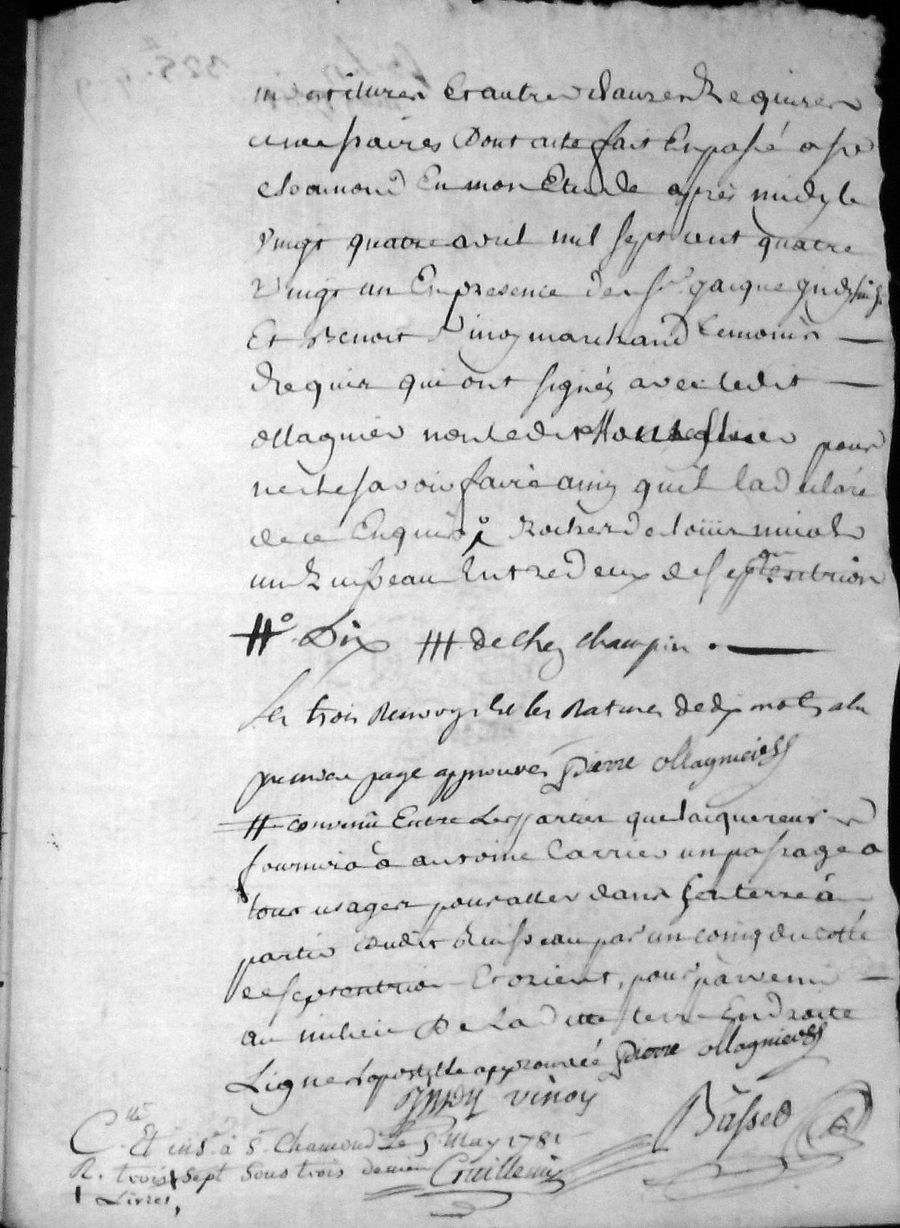 et autres clauses Requises
necessaires Dont acte fait Et passé a st
chamond En mon Etude apprès midy le
vingt quatre avril mil sept cent quatre
vingt un En presence de sr
Et Benoit Vinoy marchand temoins
Requis qui ont signés avec ledit
ollagnier non ledit pour
ne le savoir faire ainsy quil la déclaré
de ce Enquis Rocher de
un Ruisseau Entre deux de septentrion
# Dix # de chez champin
Les trois Renvoys Et les Ratures de dix mots a la
premiere page approuvés pierre ollagnier
# convenû Entre Les parties que lacquereur
fournira à antoine Carrier un passage a
tous usages pour aller dans sa terre à
partir dudit Ruisseau par un coing du cotté
de septentrion Et orient, pour parvenir
au milieu De La ditte terre En droite
Ligne Lapostille approuvée pierre ollagnier
vinoy
Basset
C. Et ins. à St. Chamond Le 5 may 1781
R. trois sept sous trois deniers Guillemin
Livres,